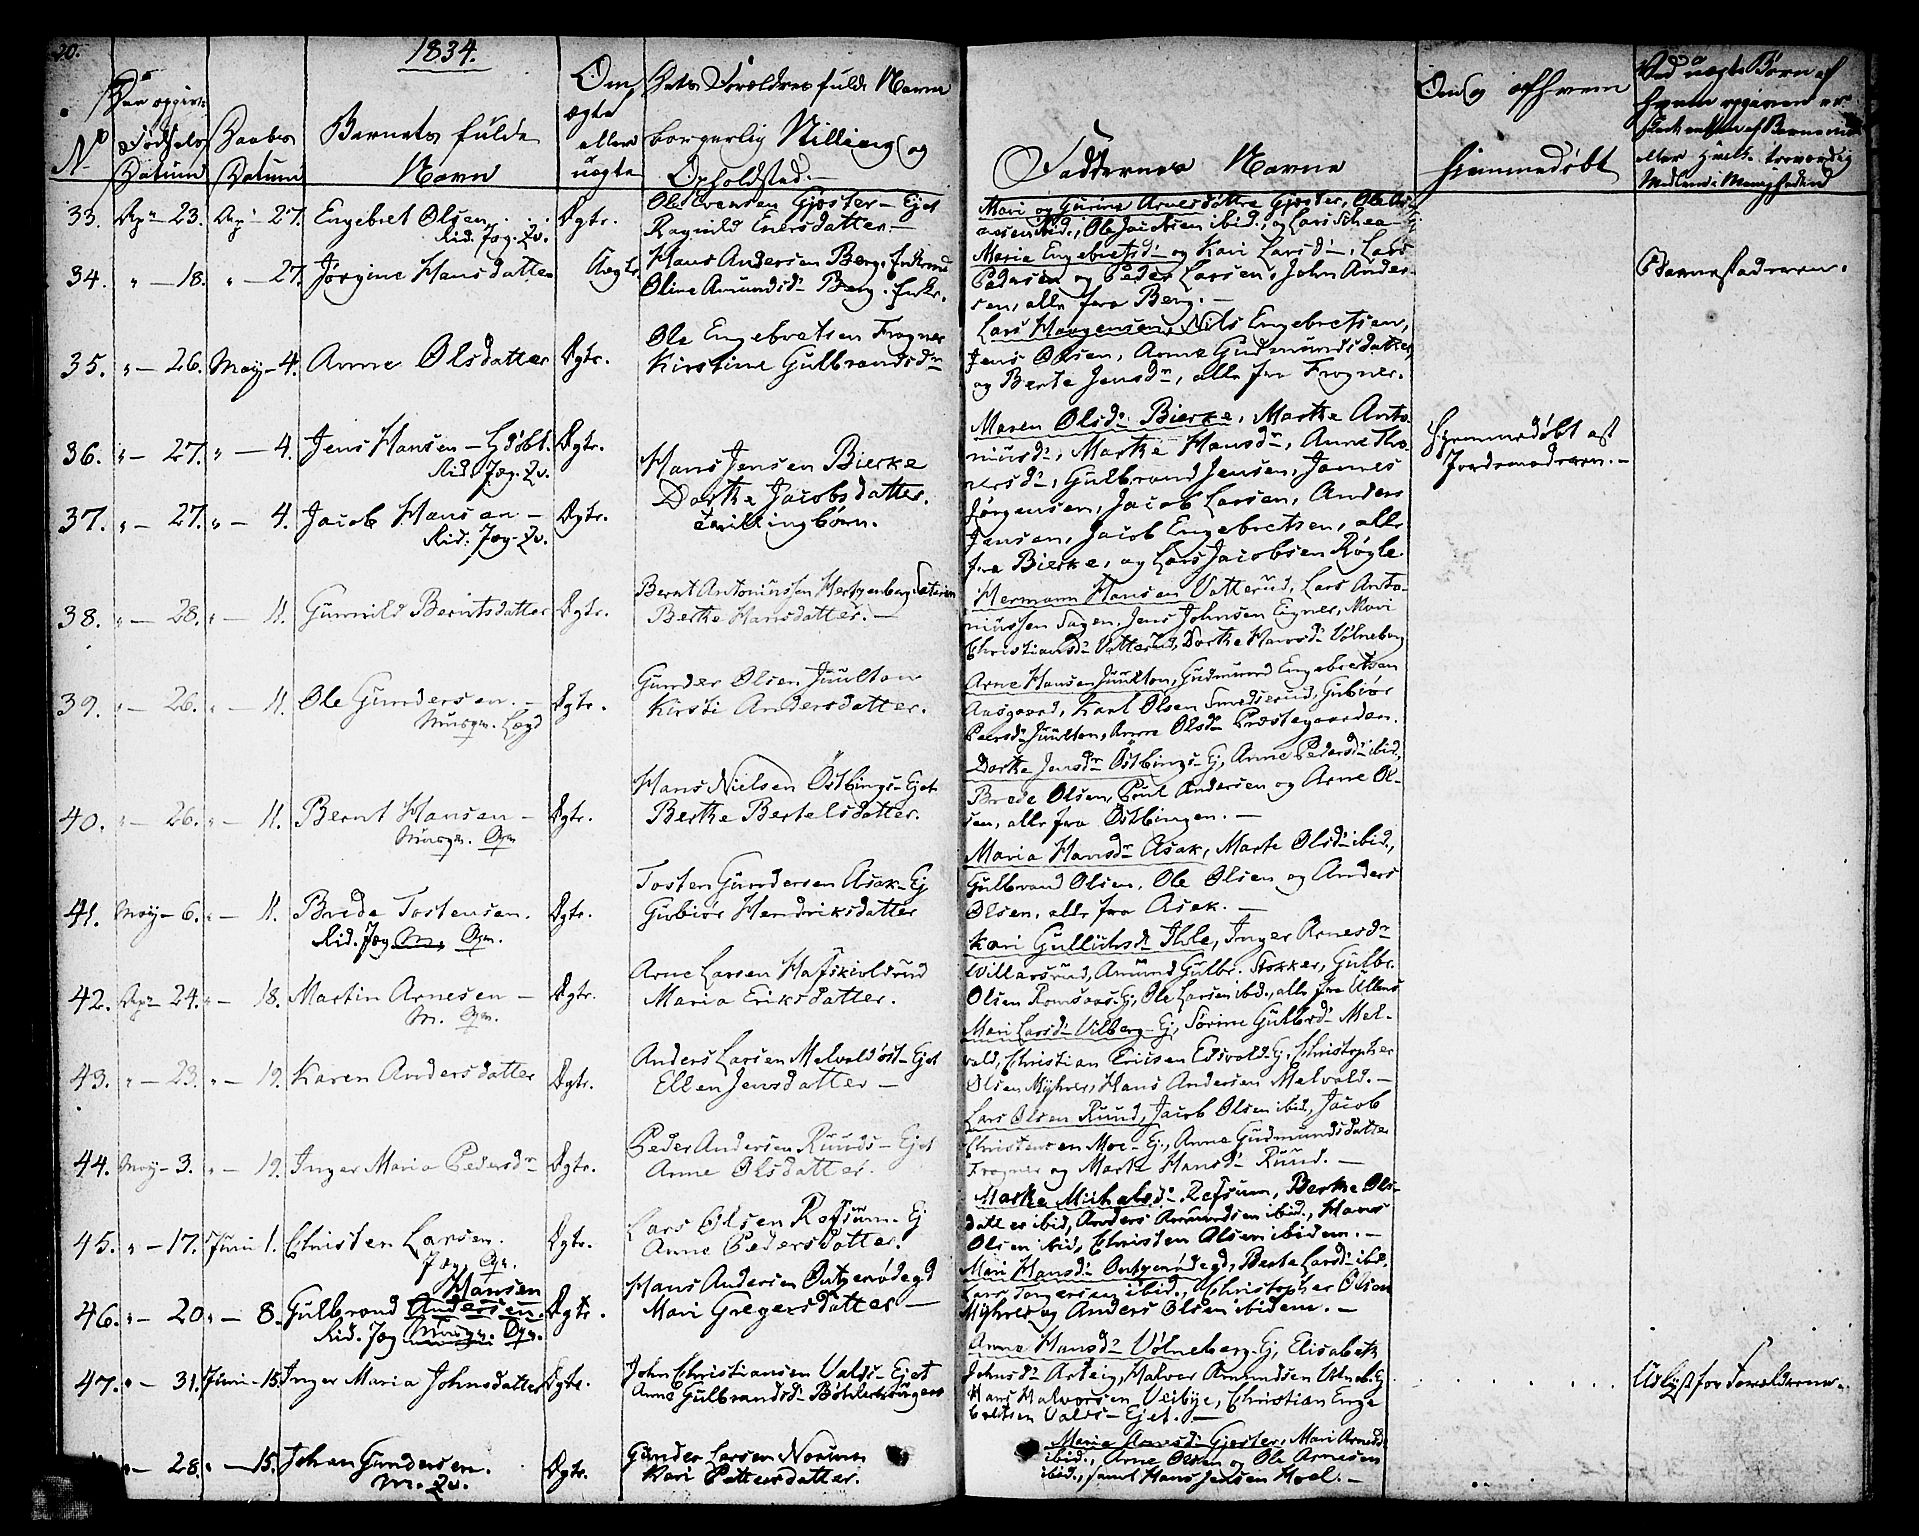 20.
1834.
No
Den opgivne Fødsels Datum
Daabs Datum
Barnets fulde Navn
Om ægte eller uægte
Dets Forældres fulde Navne borgerlig Stilling og Opholdsted.
Faddernes Navne
Om og af hvem hjemmedøbt
33. Ap. 23. Ap. 27. Engebret Olsen Ægte.
Rid. Jæg. Qv.
Ole Evensen Gjøster - Ejet
Ragnild Enersdatter.
Mari og Gurine Arnesdøttre Gjøster, Ole
ibid., Ole Jacobsen ibid., og Lars
34. " - 18. " - 27. Jørgine Hansdatter Uægte.
Hans Andersen Berg.
Oline Amundsd. Berg.
Maria Engebretsd. og Kari Larsd., Lars
Pedersen og Peder Larsen, John Ander-
sen, alle fra Berg. -
Barnefaderen.
35. " - 26. May - 4. Anne Olsdatter Ægte.
Ole Engebretsen Frogner
Kirstine Gulbrandsdr
Lars Haagensen, Nils Engebretsen,
Jens Olsen, Anne Gudmundsdatter
og Berte Jensdr, alle fra Frogner.
36. " - 27. " - 4. Jens Hansen - Hdøbt. Ægte.
Rid. Jæg. Qv.
Hans Jensen Bierke
Dorthe Jacobsdatter.
Tvillingbørn.
Maren Olsd. Bierke, Marthe Anto-
niusd., Marthe Hansdr, Anne Tho-
resd., Gulbrand Jensen, Johannes
Jørgensen, Jacob Larsen, Anders
Jensen, Jacob Engebretsen, alle
fra Bierke, og Lars Jacobsen Røgle
Hjemmedøbt af
Jordemoderen. -
37. " - 27. " - 4. Jacob Hansen - Ægte.
Rid. Jæg. Qv.
38. " - 28. " - 11. Gunnild Berntsdatter Ægte.
Bernt Antoniussen Hertzenberg
Berthe Hansdatter. -
Hermann Hansen Vatterud, Lars Anto-
niussen Hagen, Jens Johnsen Eigner, Mari
Christiansd. Vatterud, Dorthe Hansd. Vølneberg
39. " - 26. " - 11. Ole Gundersen. - Ægte.
Musqn. Lagd
Gunder Olsen Juulton
Kirsti Andersdatter.
Arne Hansen Juulton, Gudmund Engebretsen
Aasgaard, Karl Olsen Smedserud, Gubiør
Peersd. Juulton, Anne Olsd. Præstegaarden.
40. " - 26. " - 11. Bernt Hansen - Ægte.
Musqn. Gm
Hans Nielsen Østbings - Ejet
Berthe Bertelsdatter.
Dorthe Jensdr Østbings - Ej, Anne Pedersd. ibid.,
Brede Olsen, Poul Andersen og Arne Ol-
sen, alle fra Østbingen. -
41. May - 6. " - 11. Brede Tostensen. Ægte.
Rid. Jæg. M. Gm.
Tosten Gundersen Asak - Ej
Gubiør Hendriksdatter
Maria Hansdr Asak, Marte Olsd. ibid.,
Gulbrand Olsen, Ole Olsen og Anders
Olsen, alle fra Asak. -
42. Ap. 24. " - 18. Martin Arnesen - Ægte.
M. Gm.
Arne Larsen Hafskiolsrud
Maria Eriksdatter.
Kari Gulliksd. Ihle, Inger Arnesdr
Willarsrud, Amund Gulbr. Stokker, Gulbr.
Olsen Romsaas - Ej, Ole Larsen ibid., alle fra Ullens
43. " - 23. " - 19. Karen Andersdatter Ægte.
Anders Larsen Melvold øst - Ejet
Ellen Jensdatter -
Mari Larsd. Vilberg - Ej, Sørine Gulbrd. Mel-
vold, Christian Ericsen Edsvold - Ej, Christopher
Olsen Myhrer, Hans Andersen Melvold. -
44. May - 3. " - 19. Inger Maria Pedersdr Ægte.
Peder Andersen Ruuds - Ejet
Anne Olsdatter.
Lars Olsen Ruud, Jacob Olsen ibid., Jacob
Christensen Moe - Ej, Anne Gudmundsdatter
Frogner og Marte Hansd. Ruud. -
45. " - 17. Juni 1. Christen Larsen. Ægte.
Jæg. Gm.
Lars Olsen Refsum - Ej
Anne Pedersdatter.
Marthe Michelsd. Refsum, Berthe Ols-
datter ibid., Anders Amundsen ibid., Hans
Olsen ibid., Christen Olsen ibidem. -
46. " - 20 " - 8. Gulbrand Andersen Hansen Ægte.
Rid. Jæg Musqn. Gm.
Hans Andersen Ontzerødegd
Mari Gregersdatter -
Mari Hansd. Ontzerødegd, Berte Larsd. ibid.,
Lars Torgersen ibid., Christopher Olsen
Myhrer og Anders Olsen ibidem. -
47. " - 31. Juni - 15. Inger Maria Johnsdatter Ægte.
John Christiansen Valds - Ejet
Anne Gulbrandsd.
Anne Hansd. Vølneberg - Ej, Elisabeth
Johnsd. Arteig, Halvor Amundsen
Hans Halvorsen Veibye, Christian Enge
bretsen Valds - Ejet. -
for Forældrene.
" - 28. " - 15. Johan Gundersen. Ægte.
M. Qv.
Gunder Larsen Norum
Kari Pettersdatter.
Maria Arnesd. Gjøster, Mari Arnesd.
ibid., Arne Olsen og Ole Arnesen
ibid., samt Hans Jensen Hoel. -